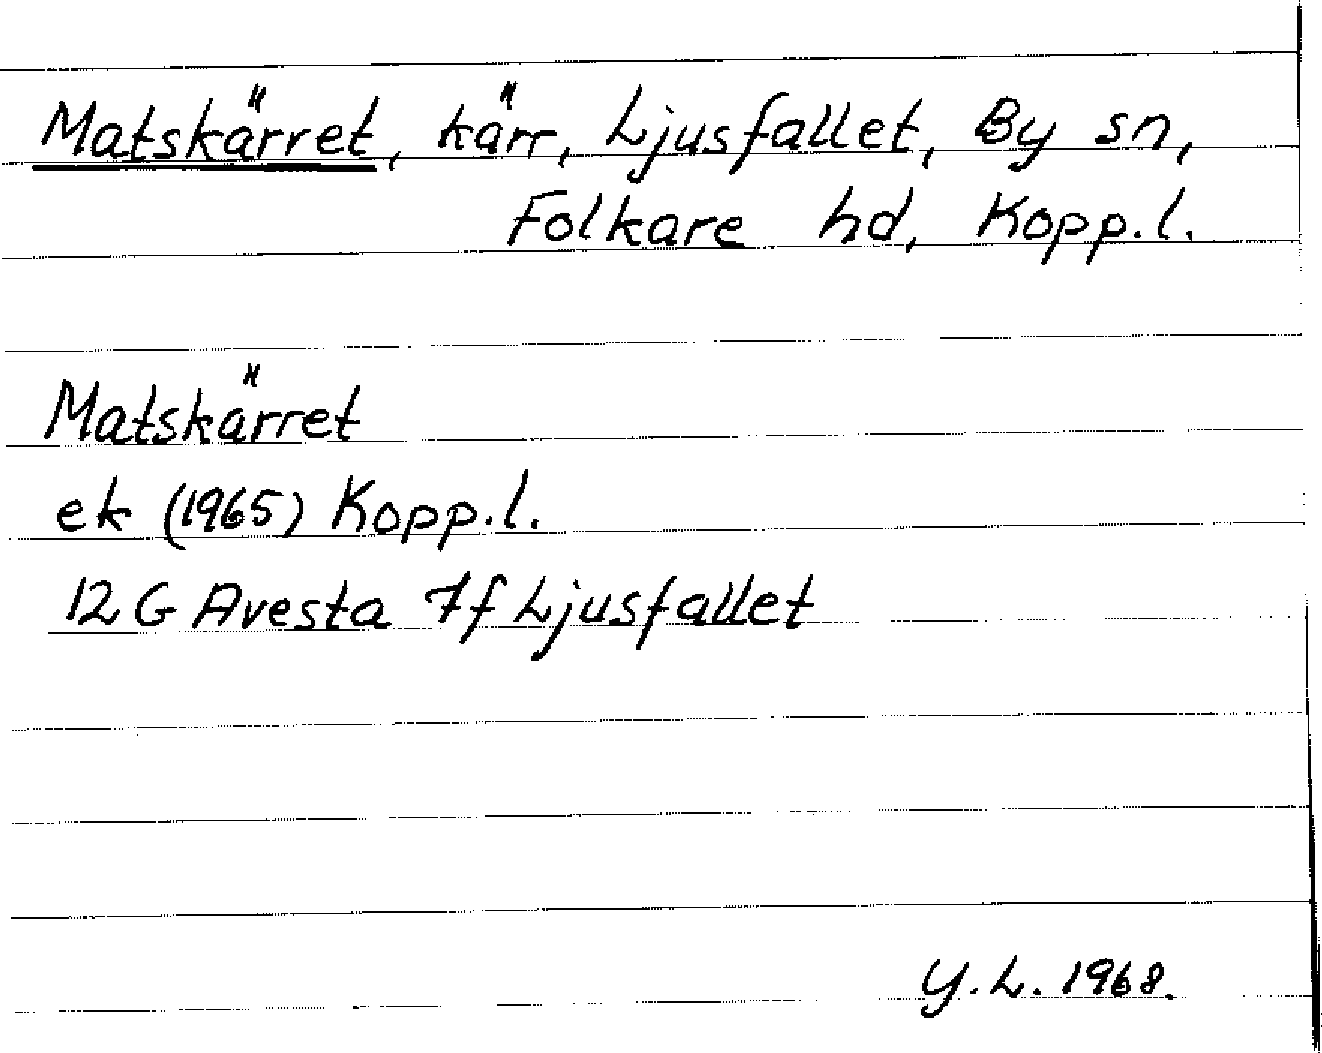 Matskärret, kärr, Ljusfallet, By sn,
Folkare hd, Kopp.l.
Matskärret
ek (1965) Kopp.l.
12 G Avesta 7f Ljusfallet
Y.L. 1968.